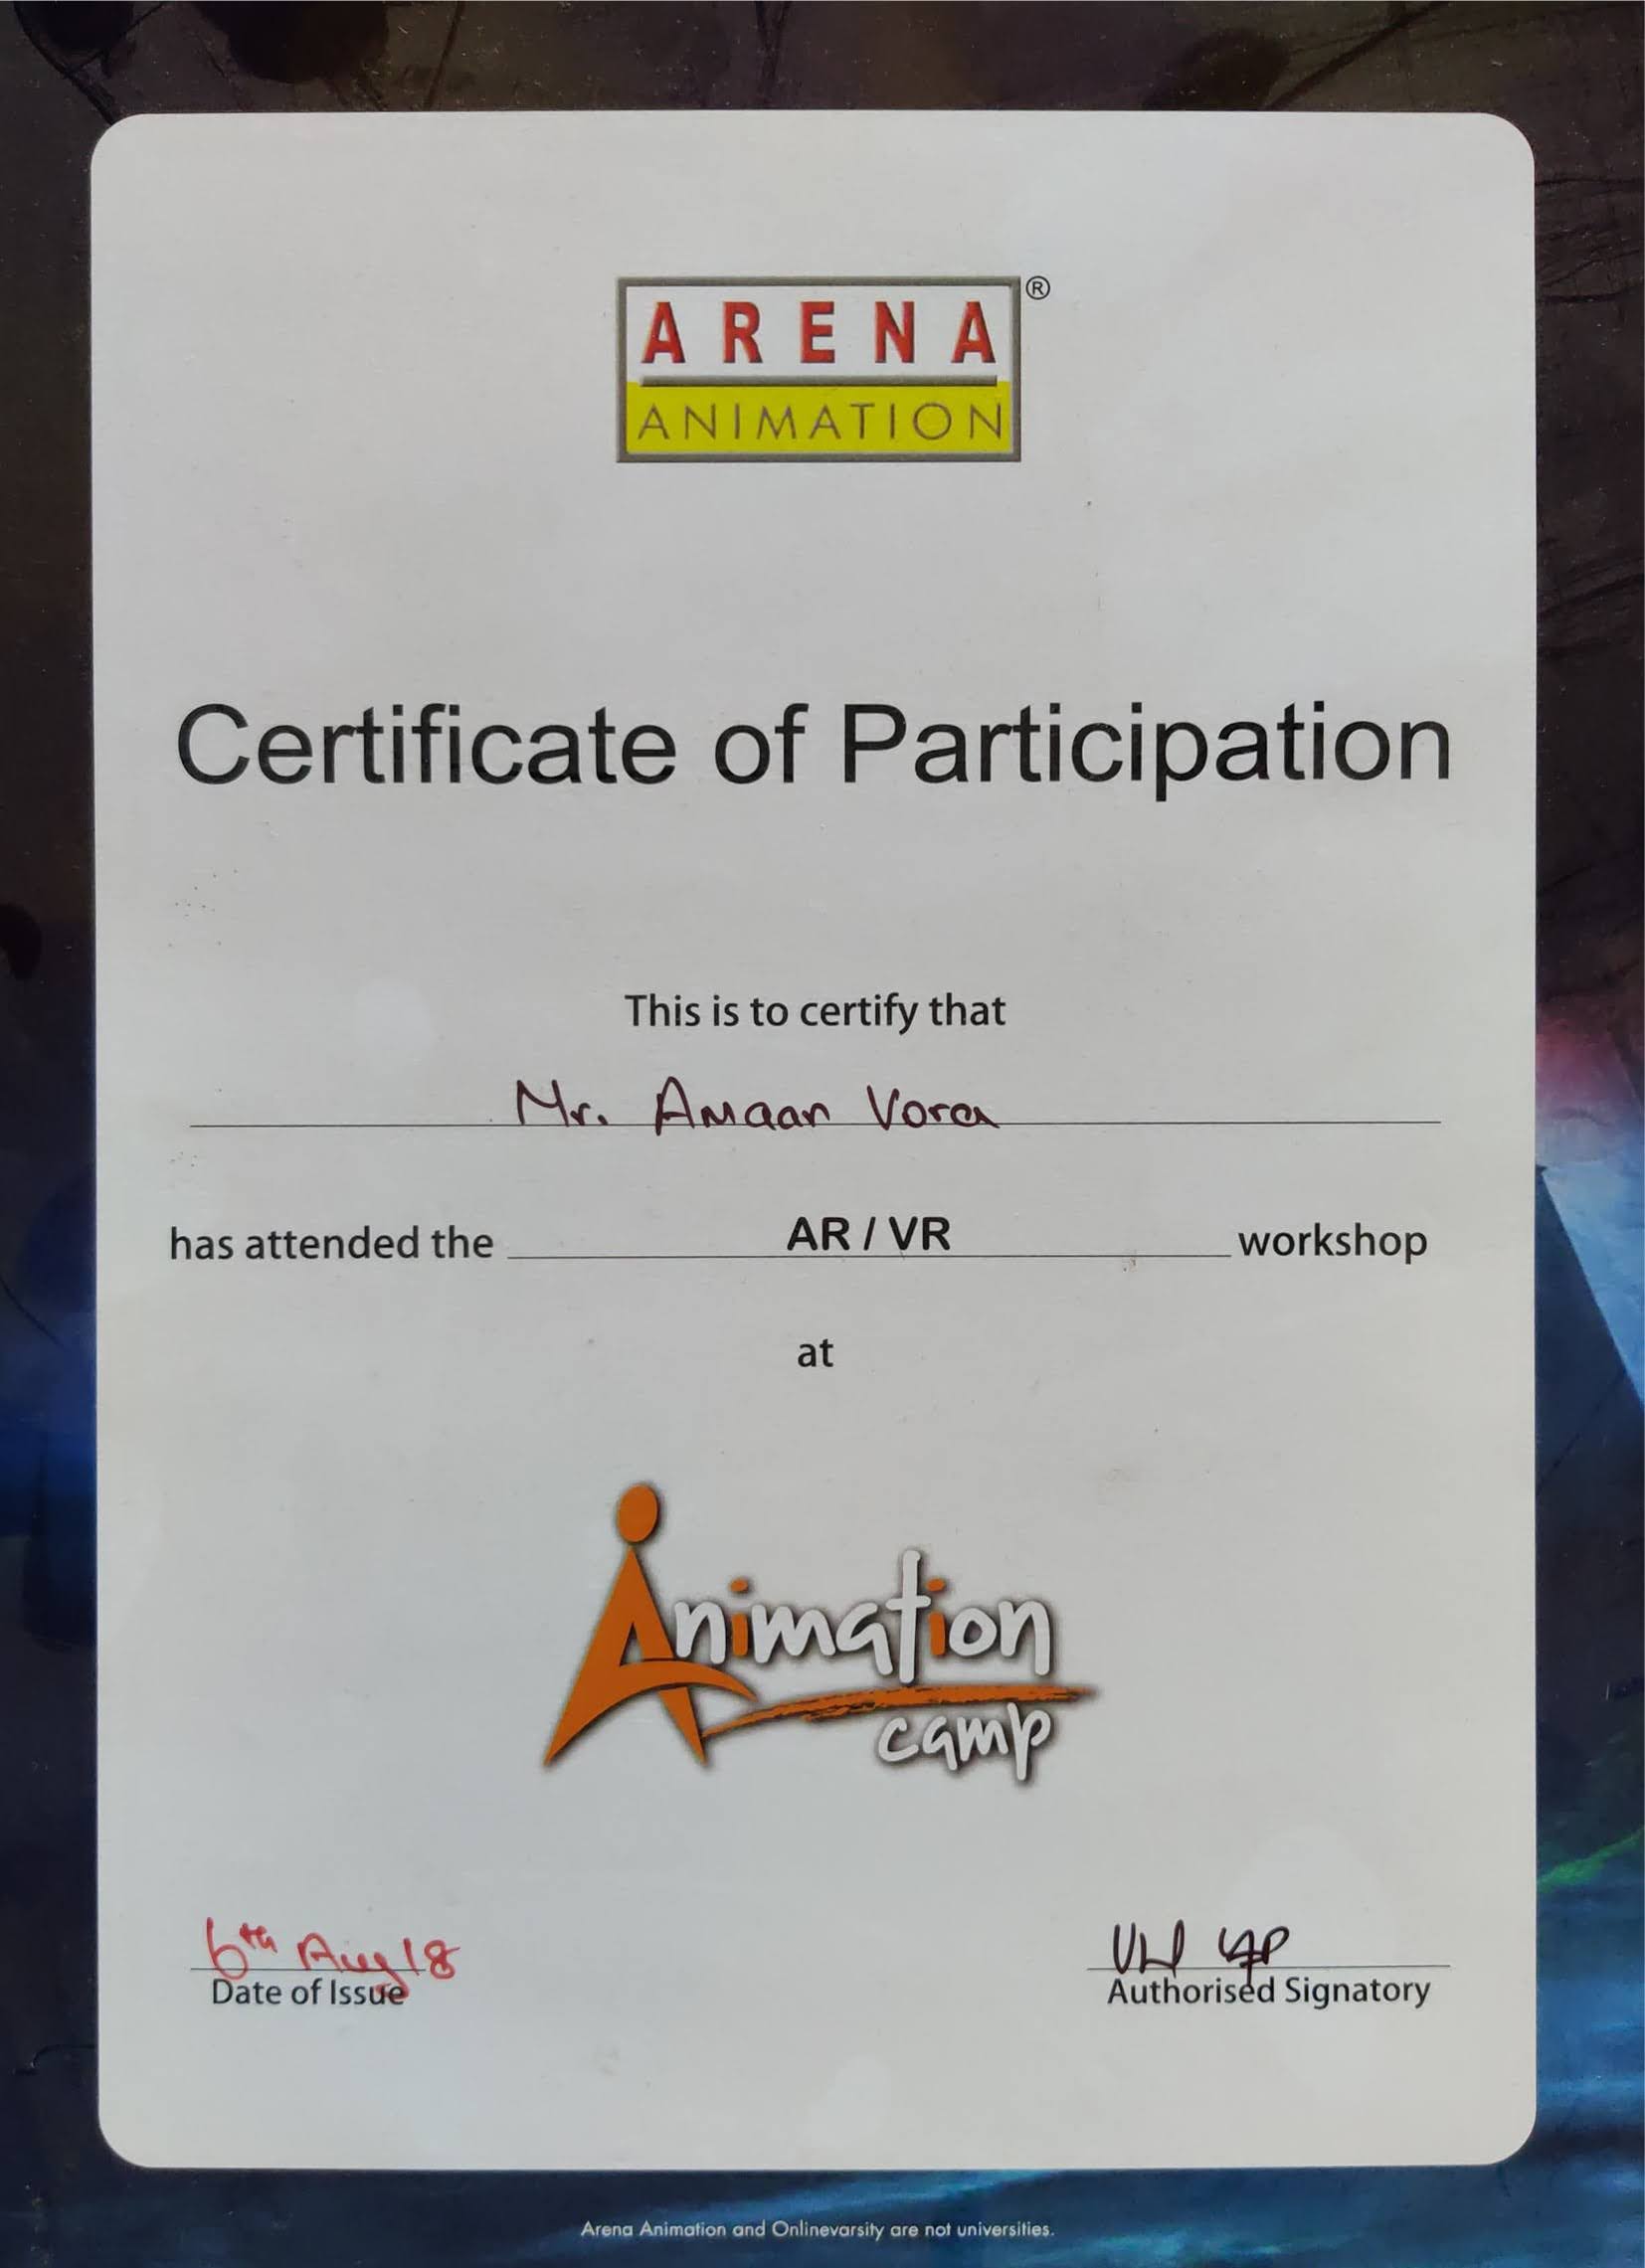 ARENA ®
ANIMATION
Certificate of Participation
This is to certify that
Mr. Amaan Vora
has attended the AR / VR workshop
at
Animation
camp
6th Aug 18
Date of Issue
Authorised Signatory
Arena Animation and Onlinevarsity are not universities.